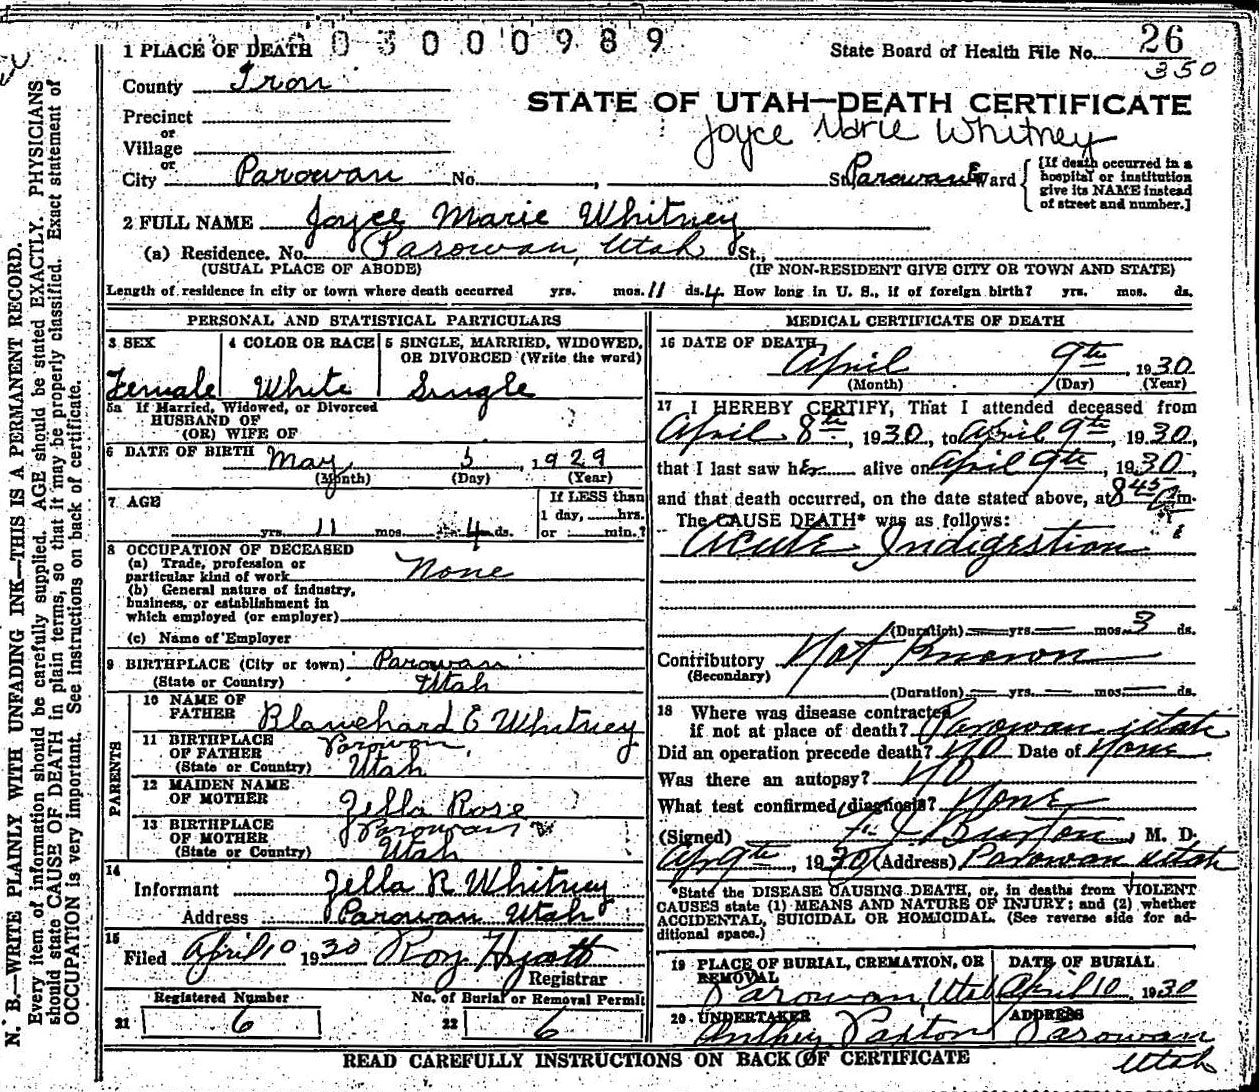 1 PLACE OF DEATH 0 3 0 0 0 9 8 9
State Board of Health File No. 26
350
County Iron
STATE OF UTAH—DEATH CERTIFICATE
Joyce Marie Whitney
Precinct
or
Village
or
City Parowan No. , St. Parowan Ward
[If death occurred in a hospital or institution give its NAME instead of street and number.]
2 FULL NAME Joyce Marie Whitney
(a) Residence. No. Parowan, Utah St.,
(USUAL PLACE OF ABODE) (IF NON-RESIDENT GIVE CITY OR TOWN AND STATE)
Length of residence in city or town where death occurred yrs. mos. 11 ds. 4 How long in U. S., if of foreign birth? yrs. mos. ds.
PERSONAL AND STATISTICAL PARTICULARS
3 SEX 4 COLOR OR RACE 5 SINGLE, MARRIED, WIDOWED,
OR DIVORCED (Write the word)
Female White Single
5a If Married, Widowed, or Divorced
HUSBAND OF
(OR) WIFE OF
6 DATE OF BIRTH May 5, 1929
(Month) (Day) (Year)
7 AGE If LESS than
1 day, hrs.
yrs. 11 mos. 4 ds. or min.?
8 OCCUPATION OF DECEASED
(a) Trade, profession or
particular kind of work None
(b) General nature of industry,
business, or establishment in
which employed (or employer)
(c) Name of Employer
9 BIRTHPLACE (City or town) Parowan
(State or Country) Utah
PARENTS
10 NAME OF
FATHER Blanchard E Whitney
11 BIRTHPLACE
OF FATHER Parowan,
(State or Country) Utah
12 MAIDEN NAME
OF MOTHER Zella Rose
13 BIRTHPLACE
OF MOTHER Parowan
(State or Country) Utah
14
Informant Zella R Whitney
Address Parowan Utah
15
Filed April 10 1930 Roy Hyatt
Registrar
Registered Number No. of Burial or Removal Permit
21 6 22 6
MEDICAL CERTIFICATE OF DEATH
16 DATE OF DEATH
April 9th, 1930
(Month) (Day) (Year)
17 I HEREBY CERTIFY, That I attended deceased from
April 8th, 1930, to April 9th, 1930,
that I last saw her alive on April 9th, 1930,
and that death occurred, on the date stated above, at 8 45 m.
The CAUSE DEATH* was as follows:
Acute Indigestion
(Duration) yrs. mos. 3 ds.
Contributory Not Known
(Secondary)
(Duration) yrs. mos. ds.
18 Where was disease contracted
if not at place of death? Parowan Utah
Did an operation precede death? NO Date of None
Was there an autopsy? NO
What test confirmed diagnosis? None
(Signed) Burton, M. D.
Apr 9th, 1930 (Address) Parowan Utah
*State the DISEASE CAUSING DEATH, or, in deaths from VIOLENT
CAUSES state (1) MEANS AND NATURE OF INJURY; and (2) whether
ACCIDENTAL, SUICIDAL OR HOMICIDAL. (See reverse side for ad-
ditional space.)
19 PLACE OF BURIAL, CREMATION, OR DATE OF BURIAL
REMOVAL
Parowan, Utah April 10 1930
20 UNDERTAKER ADDRESS
Paxton Parowan
Utah
READ CAREFULLY INSTRUCTIONS ON BACK OF CERTIFICATE
N. B.—WRITE PLAINLY WITH UNFADING INK—THIS IS A PERMANENT RECORD.
Every item of information should be carefully supplied. AGE should be stated EXACTLY. PHYSICIANS
should state CAUSE OF DEATH in plain terms, so that it may be properly classified. Exact statement of
OCCUPATION is very important. See instructions on back of certificate.